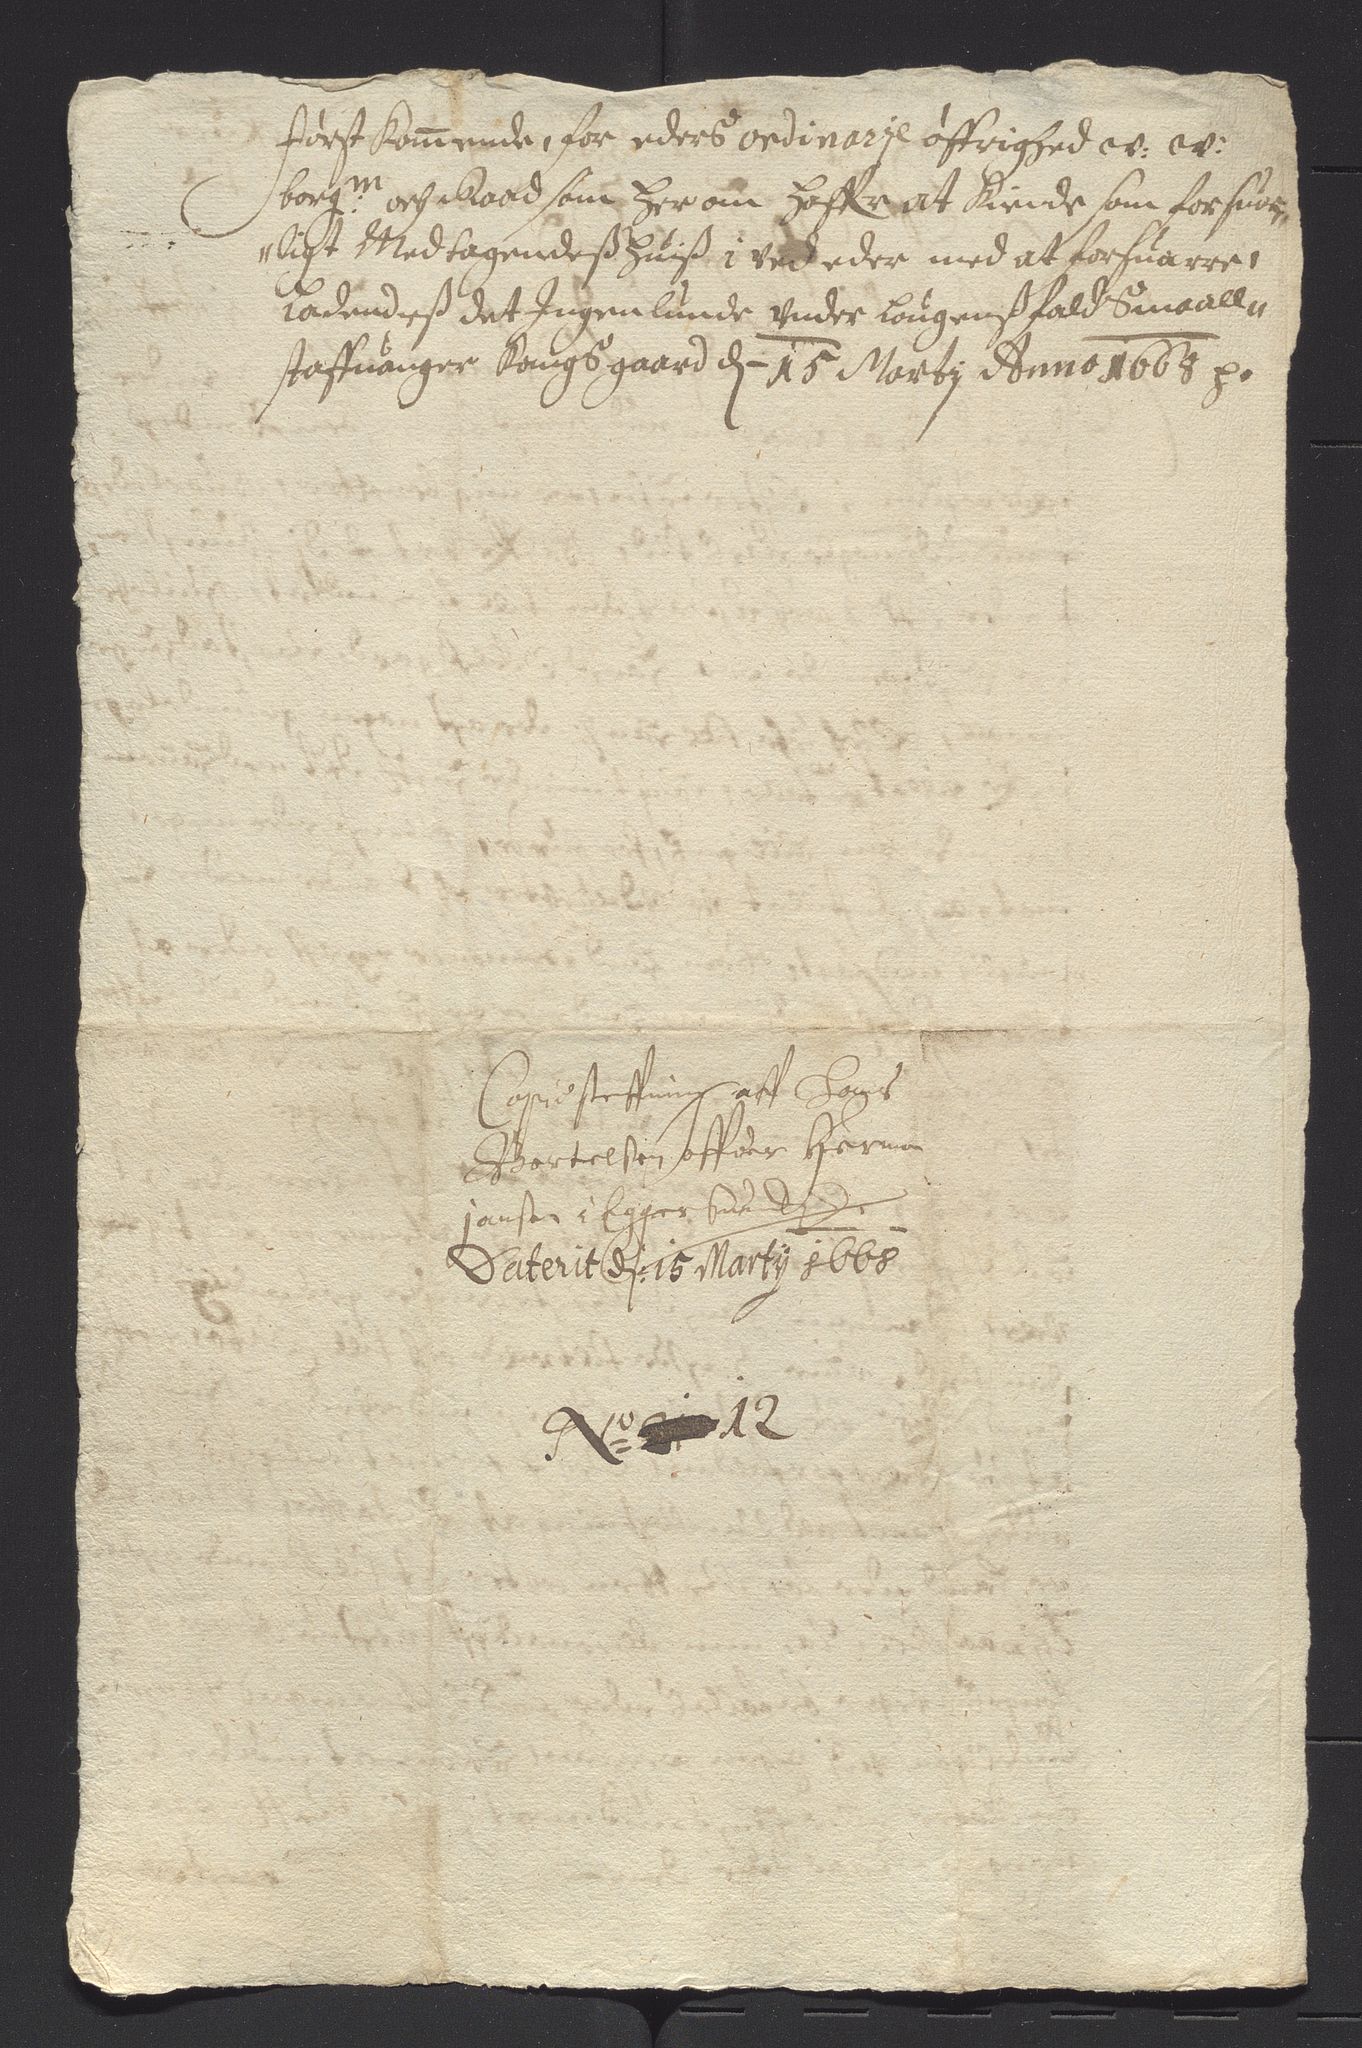 først Kommende, for eders ordinarje öffrighed w: w:
borgm: och Raad som her om haffr at Kiende som forsuar„
„ligt Medtagendeß huiß i ved eder med at forsuarre,
Ladendeß det Ingenlunde vnder Lougenß fald Smaall„
staffuanger Kongsgaard dn 15 Martij Anno 1668 p.
Copie steffning aff Hans
Bertelsen offuer Herman
jansen i Eggersund
Daterit dn: 15 Martij 1668
No 12